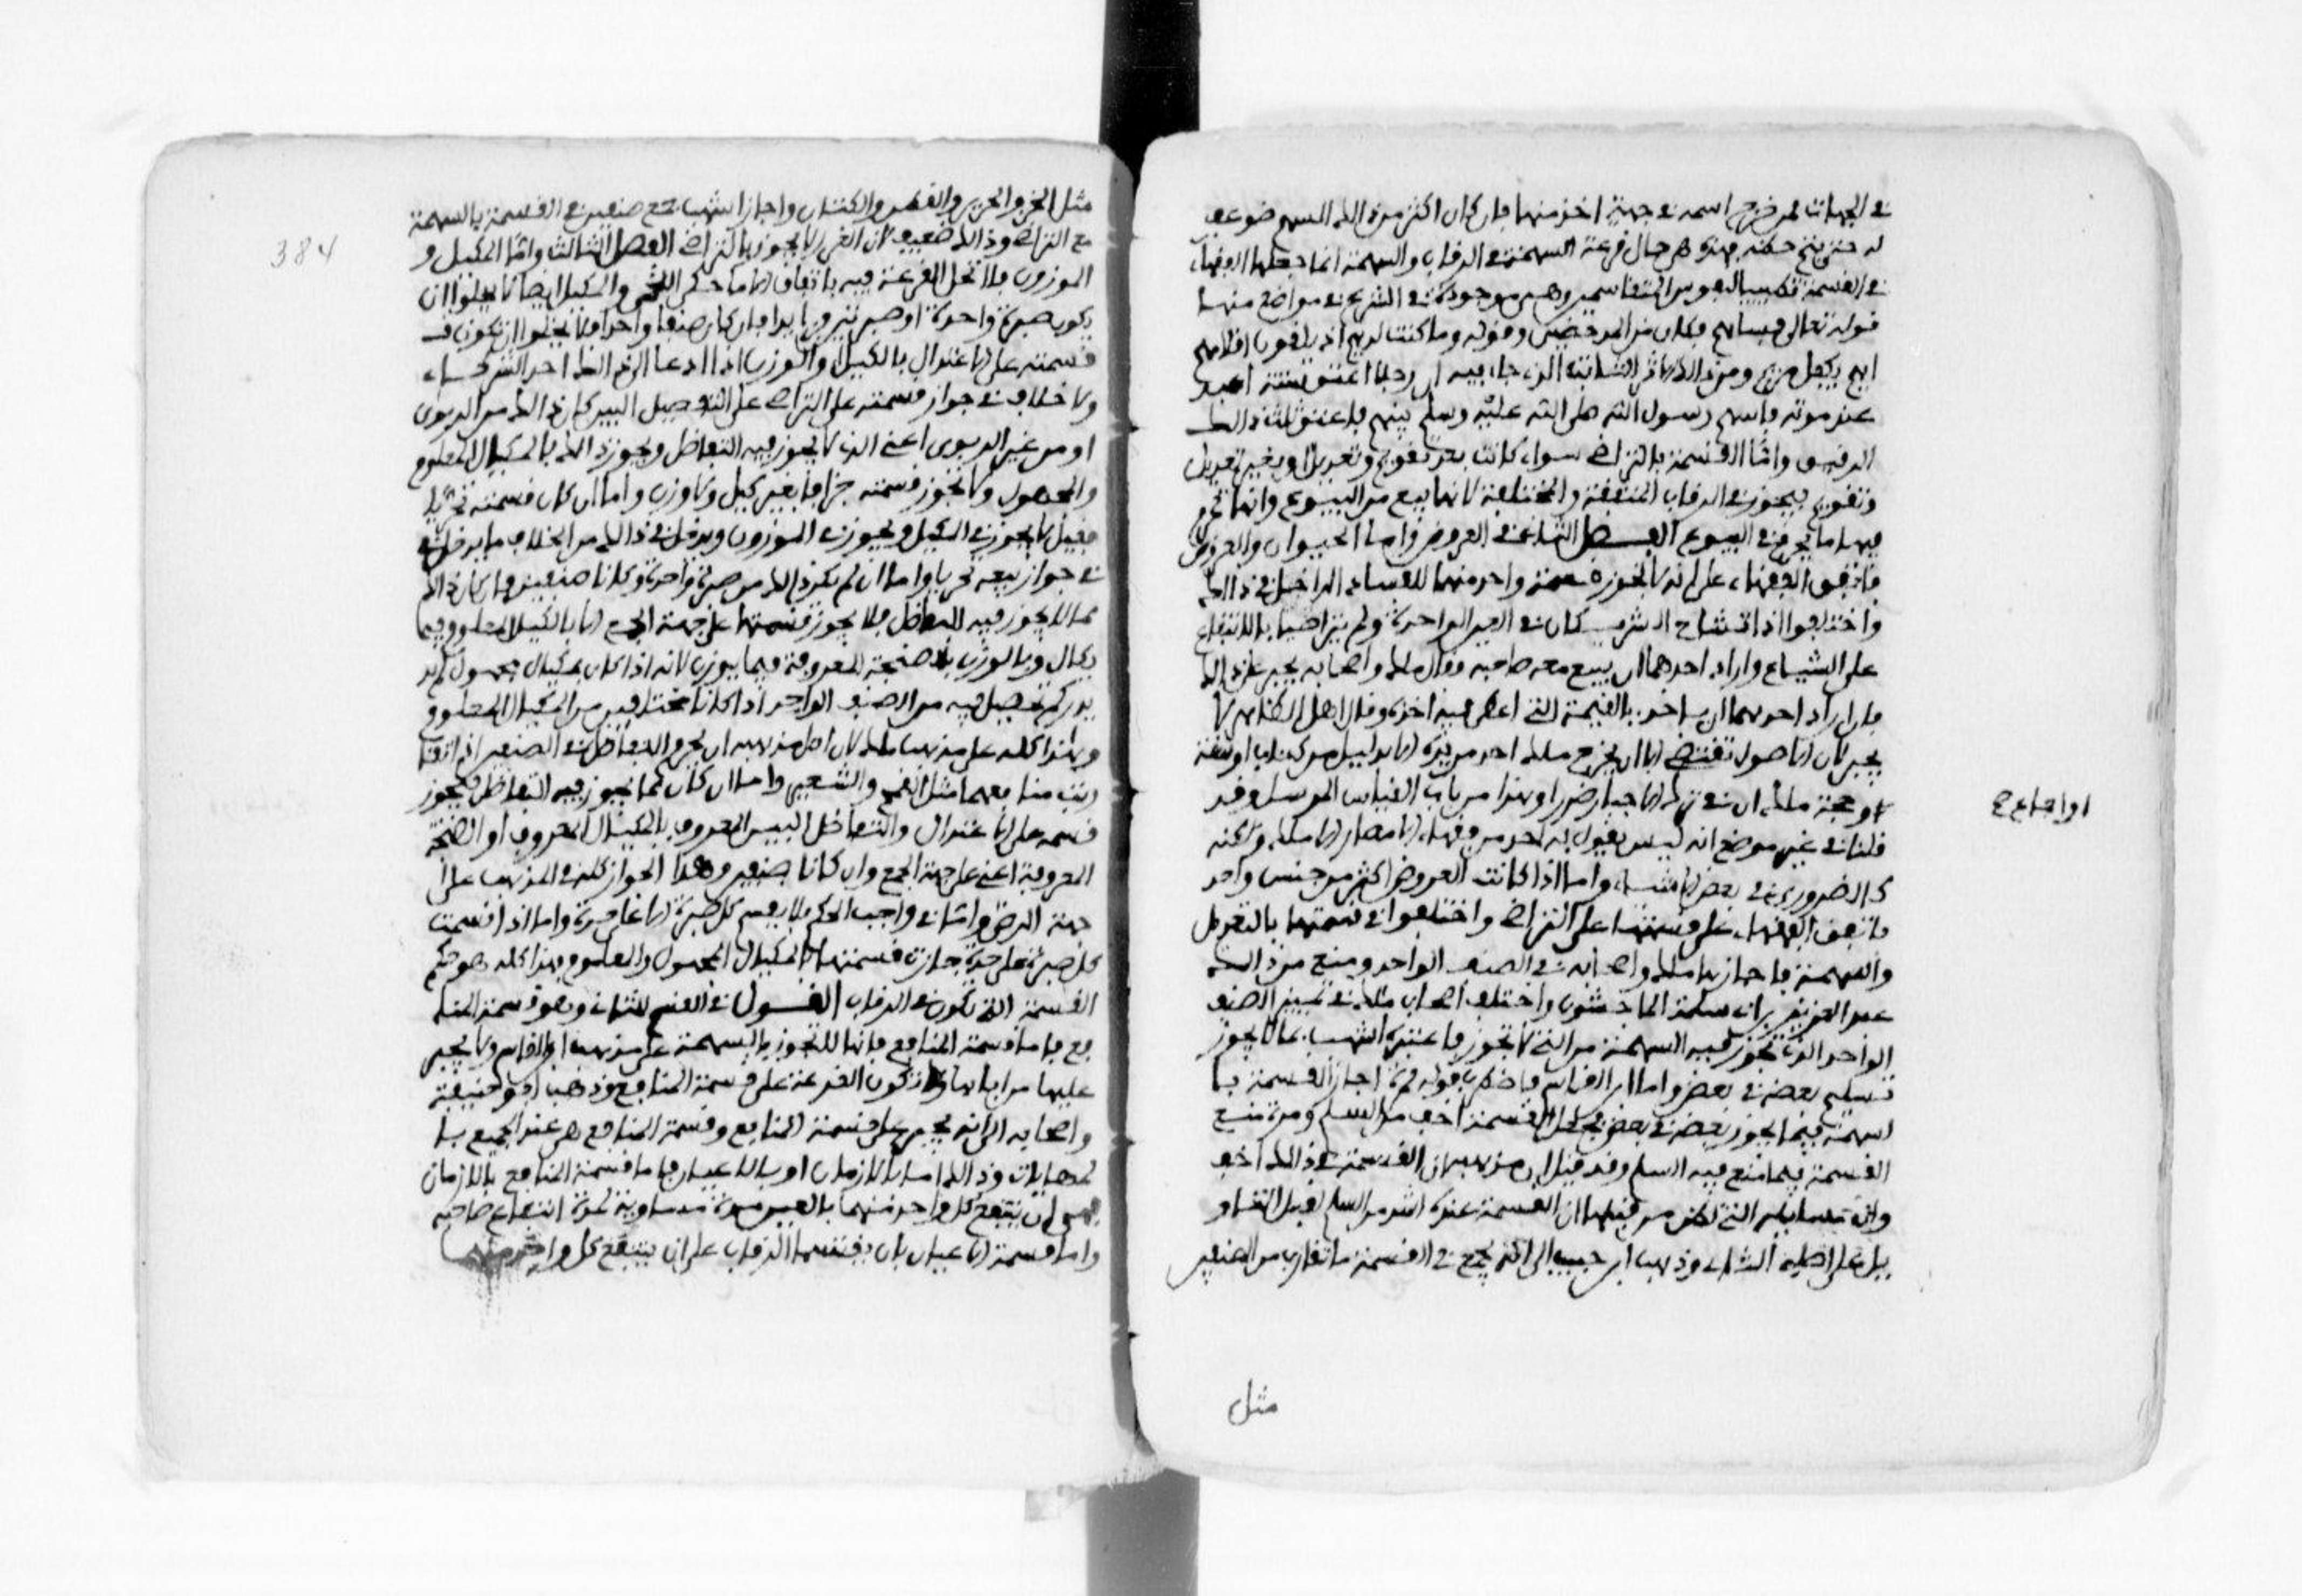 في الجهات فمن خرج اسمه في جهة اخذ منها فان كان اكثر من ذلك السهم ضوعف
له حتى يتم حكمه فهذه هي حال قرعة السهمة في الرقاب والسهمة انما جعلها الفقهاء
في القسمة تطييبا لنفوس المتقاسمين وهي موجودة في الشرع في مواضع منها
قوله تعالى فساهم فكان من المدحضين وقوله وما كنت لديهم اذ يلقون اقلامهم
ايهم يكفل مريم ومن ذلك الاثر الثابت الذي جاء فيه ان رجلا اعتق ستة اعبد
عند موته فاسهم رسول الله صلى الله عليه وسلم بينهم فاعتق ثلث ذلك
الرقيق واما القسمة بالتراضي سواء كانت بعد تقويم وتعديل او بغير تعديل
وتقويم فيجوز في الرقاب المتفقة والمختلفة لانها بيع من البيوع وانما تحرم
فيها ما يحرم في البيوع الفصل الثاني في العروض واما الحيوان والعروض
فاتفق الفقهاء على انه لا تجوز قسمة واحد منهما للفساد الداخل في ذلك
واختلفوا اذا تشاح الشريكان في العين الواحدة ولم يتراضيا بالانتفاع
على الشياع واراد احدهما ان يبيع معه صاحبه فقال ملك واصحابه يجبر على ذلك
فان اراد احدهما ان ياخذ بالقيمة التي اعطى فيه اخذه وقال اهل الظاهر لا
يجبر لان الاصول تقتضي الا ان يخرج ملك احد من يده الا بدليل من كتاب او سنة
وحجة ملك ان في ترك الاجبار ضررا وهذا من باب القياس المرسل وقد
قلنا في غير موضع انه ليس يقول به احد من فقهاء الامصار الا ملك ولكنه
كالضروري في بعض الاشياء واما اذا كانت العروض اكثر من جنس واحد
فاتفق الفقهاء على قسمتها على التراضي واختلفوا في قسمتها بالتعديل
والسهمة فاجازها ملك واصحابه في الصنف الواحد ومنع من ذلك
عبد العزيز بن ابي سلمة الماجشون واختلف اصحاب ملك في تمييز الصنف
الواحد الذي تجوز فيه السهمة من التي لا تجوز فاعتبره اشهب بما لا يجوز
تسليم بعضه في بعض واما ابن القاسم فاضطرب قوله فمرة اجاز القسمة با
لسهمة فيما يجوز بعضه في بعض فجعل القسمة اخف من السلم ومرة منع
القسمة فيما منع فيه السلم وقد قيل ان مذهبه ان القسمة في ذلك اخف
وان مسايل التي يظن من قبلها ان القسمة عنده اشد من السلم تقبل التاو
يل على اصله الثاني وذهب ابن حبيب الى انه يجمع في القسمة ما تقارب من الصنفين
او اجماع ح
مثل
384
مثل الخز والحرير والقطن والكتان واجاز اشهب جمع صنفين في القسمة بالسهمة
مع التراضي وذلك ضعيف لان الغرر لا يجوز بالتراضي الفصل الثالث واما المكيل و
الموزون فلا تحل القرعة فيه باتفاق الا ما حكى اللخمي والمكيل ايضا لا يخلوا ان
يكون صبرة واحدة او صبرتين فزايدا فان كان صنفا واحدا فلا يخلوا ان تكون
قسمته على الاعتدال بالكيل او الوزن اذا دعا الى ذلك احد الشركاء
ولا خلاف في جواز قسمته على التراضي على التفضيل البين كان ذلك من الربوي
او من غير الربوي اعني الذي لا يجوز فيه التفاضل ويجوز ذلك بالمكيال المعلوم
والمجهول ولا تجوز قسمته جزافا بغير كيل ولا وزن واما ان كان قسمته تحريا
فقيل لا يجوز في المكيل ويجوز في الموزون ويدخل في ذلك من الخلاف ما يدخل
في جواز بيعه تحريا واما ان لم يكن ذلك من صبرة واحدة وكانا صنفين فان كان ذلك
مما لا يجوز فيه التفاضل فلا يجوز قسمتها على جهة الجمع الا بالكيل المعلوم فيما
يكال وبالوزن بالصنجة المعروفة فيما يوزن لانه اذا كان بمكيال مجهول لم
يدر كم يحصل فيه من الصنف الواحد اذا كانا مختلفين من المكيال المعلوم
وهذا كله على مذهب ملك لان اصل مذهبه ان يحرم التفاضل في الصنفين اذا تقا
ربت منافعهما مثل القمح والشعير واما ان كان مما يجوز فيه التفاضل فيجوز
قسمه على الاعتدال والتفاضل البين المعروف بالمكيال المعروف او الصنجة
المعروفة اعني على جهة الجمع وان كانا صنفين وهذا الجواز كله في المذهب على
جهة الرضا واما في واجب الحكم فلا يقسم كل صبرة الا على حدة واما اذا قسمت
كل صبرة على حدة جازت قسمتها بالمكيال المجهول والمعلوم فهذا كله هو حكم
القسمة التي تكون في الرقاب القول في القسم الثاني وهو قسمة المنا
فع فاما قسمة المنافع فانها لا تجوز بالسهمة على مذهب ابن القاسم ولا يجبر
عليها من اباها ولا تكون القرعة على قسمة المنافع وذهب ابو حنيفة
واصحابه الى انه يجبر على قسمة المنافع وقسمة المنافع هي عند الجميع با
لمهايات وذلك اما بالازمان او بالاعيان فاما قسمة المنافع بالازمان
فهو ان ينتفع كل واحد منهما بالعين مدة مساوية لمدة انتفاع صاحبه
واما قسمة الاعيان بان يقتسما الرقاب على ان ينتفع كل واحد منهما